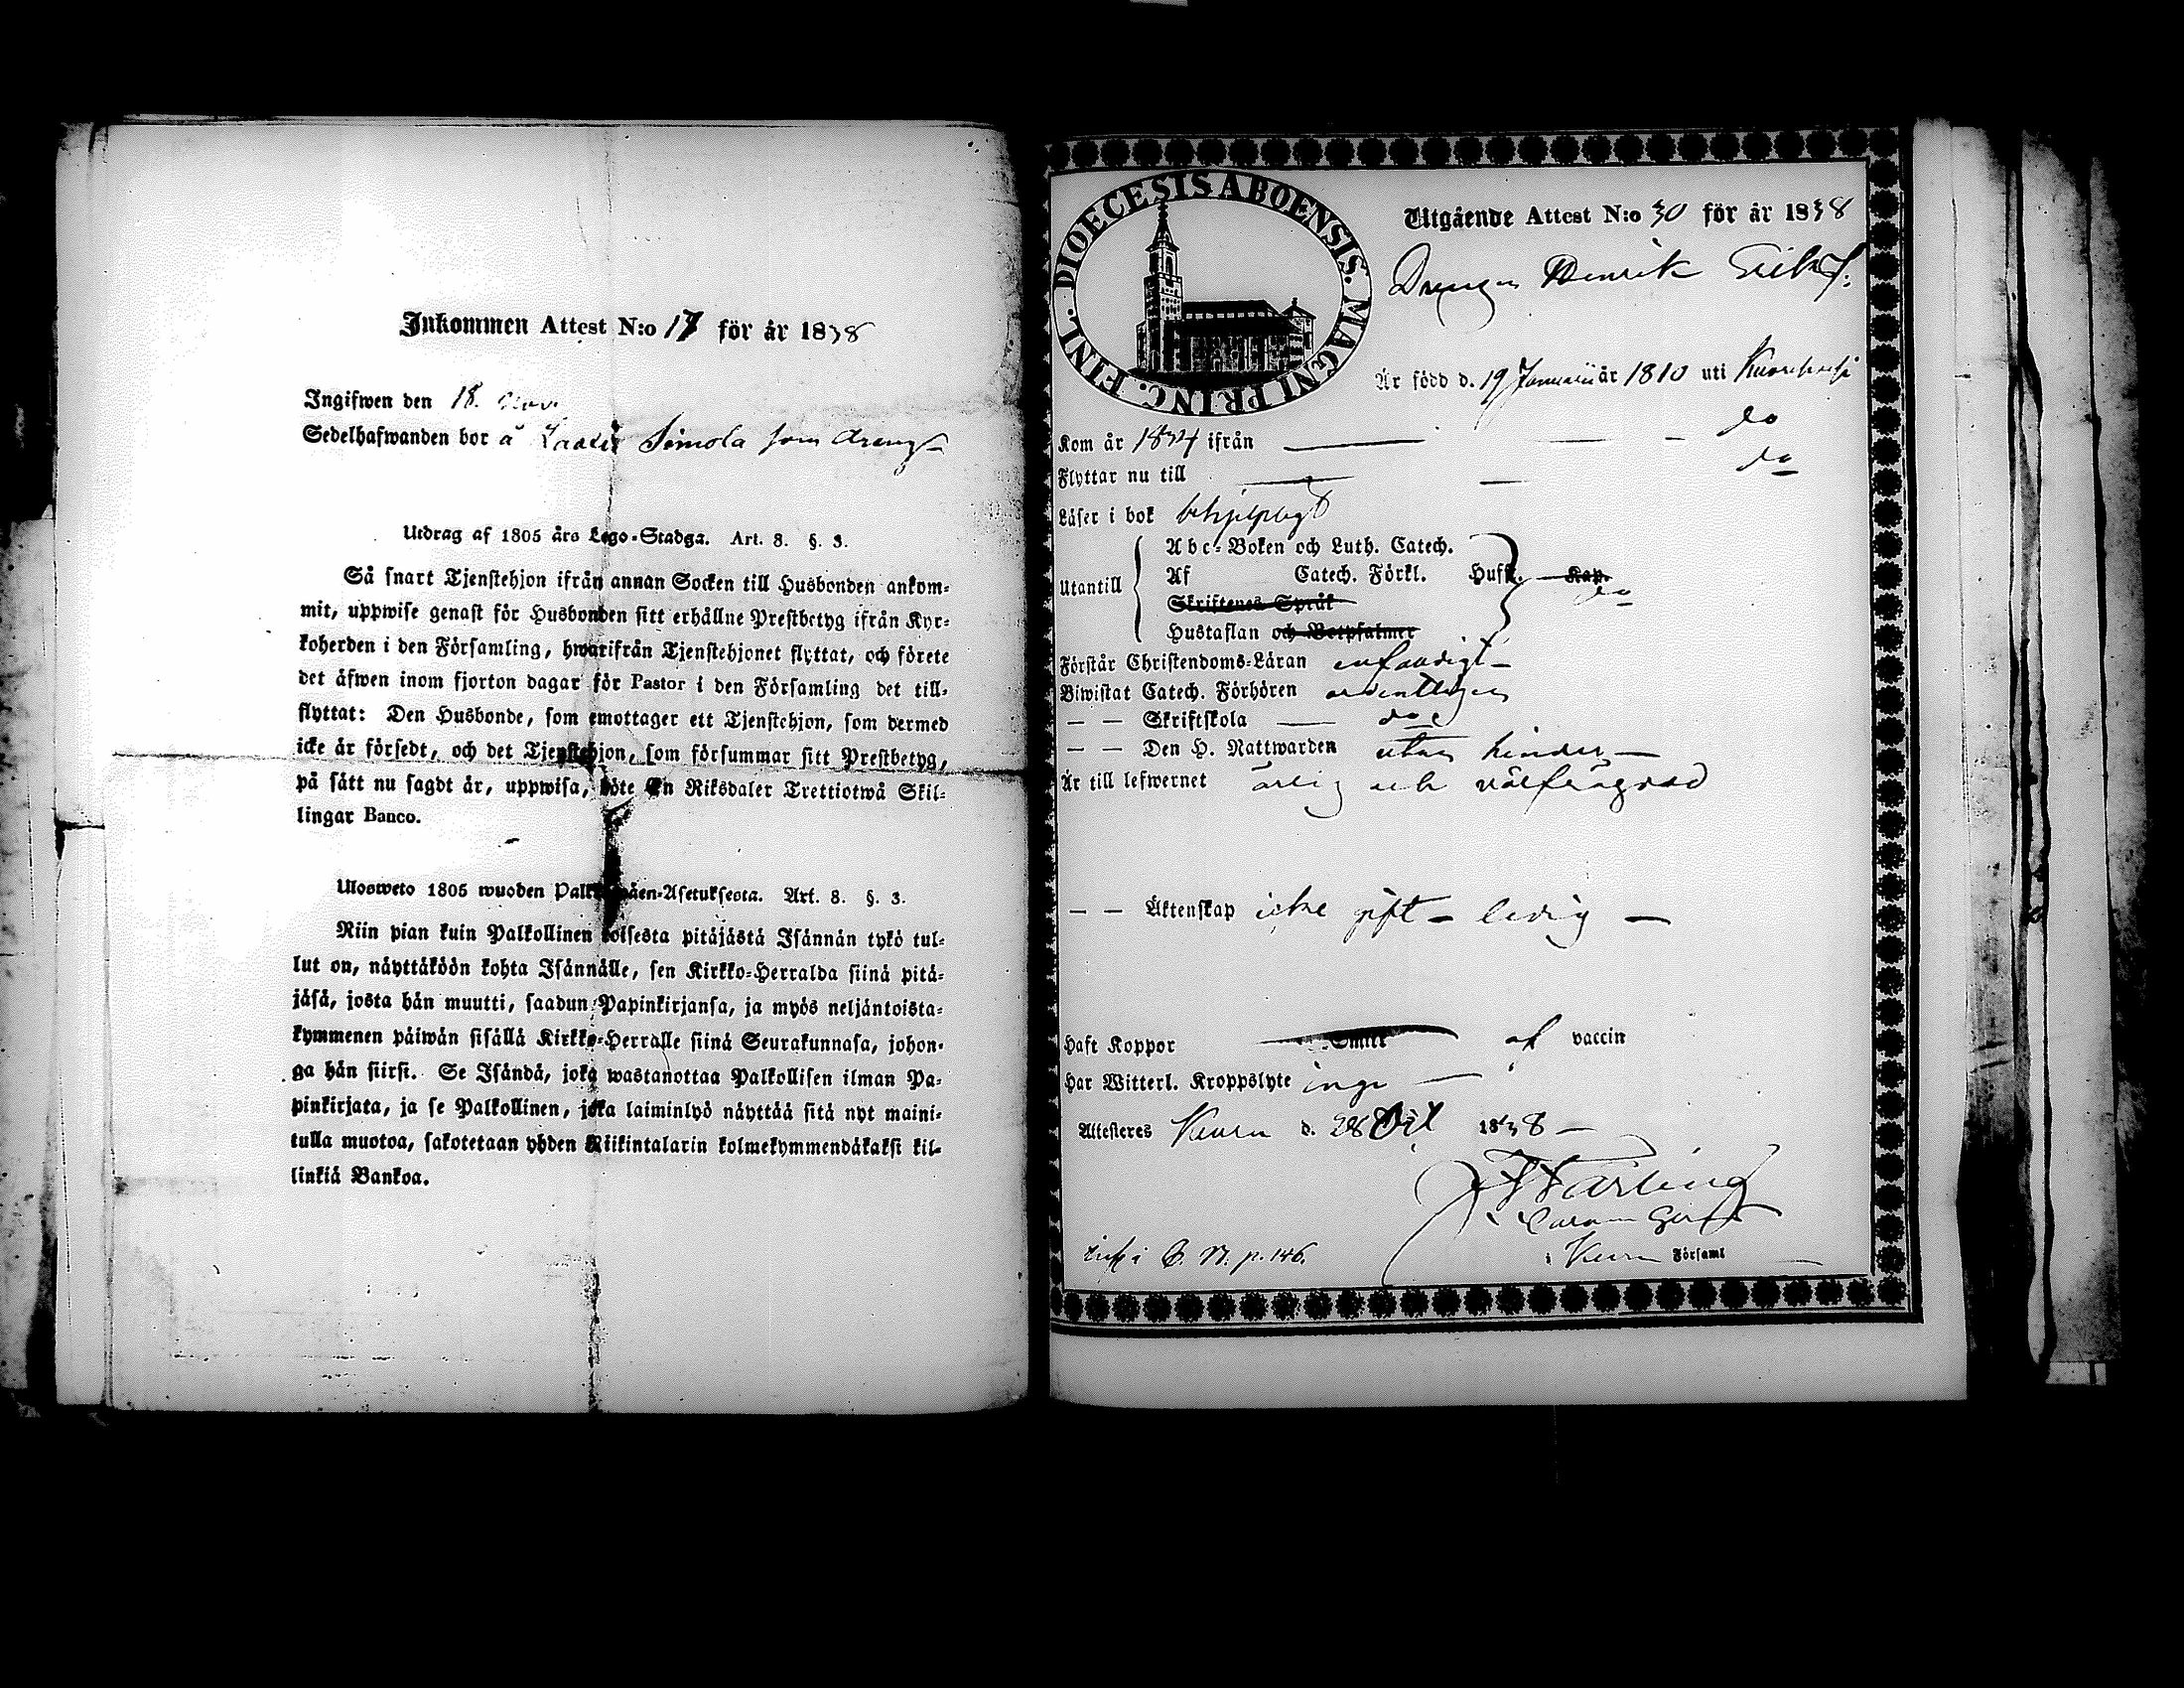 Inkommen Attest N:o 17 för år 1838
Ingifwen den 18. Nov.
Sedelhafwanden bor å Simola som dreng
Utdrag af 1805 års Lego-Stadga. Art. 8. §. 3.
Så snart Tjenstehjon ifrån annan Socken till Husbonden ankom-
mit, uppwise genast för Husbonden sitt erhållne Prestbetyg ifrån Kyr-
koherden i den Församling, hwarifrån Tjenstehjonet flyttat, och förete
det äfwen inom fjorton dagar för Pastor i den Församling det till-
flyttat: Den Husbonde, som emottager ett Tjenstehjon, som dermed
icke är försedt, och det Tjenstehjon, som försummar sitt Prestbetyg,
på sätt nu sagdt är, uppwisa, böte En Riksdaler Trettiotwå Skil-
lingar Banco.
Ulosweto 1805 wuoden Palkowäen-Asetuksesta. Art. 8. §. 3.
Niin pian kuin Palkollinen toisesta pitäjästä Isännän tykö tul-
lut on, näyttäköön kohta Isännälle, sen Kirkko-Herralda siinä pitä-
jäsä, josta hän muutti, saadun Papinkirjansa, ja myös neljäntoista-
kymmenen päiwän sisällä Kirkko-Herralle siinä Seurakunnasa, johon-
ga hän siirsi. Se Isändä, joka wastanottaa Palkollisen ilman Pa-
pinkirjata, ja se Palkollinen, joka laiminlyö näyttää sitä nyt maini-
tulla muotoa, sakotetaan yhden Riikintalarin kolmekymmendäkaksi kil-
linkiä Bankoa.
DIOECESIS ABOENSIS. MAGNI PRINC. FINL.
Utgående Attest N:o 30 för år 1838
Drengen Henrik Eriks.
Är född d. 19 Januarii år 1810 uti
Kom år 1834 ifrån — — - do
Flyttar nu till — — do
Läser i bok behjelpligt
Utantill
Abc-Boken och Luth. Catech.
Af Catech. Förkl. Husf. Kap.
do
Skriftenes Språk
Hustaflan och Botpsalmer
Förstår Christendoms-Läran enfaldigt —
Biwistat Catech. Förhören ordentligen
— — Skriftskola — do
— — Den H. Nattwarden utan hinder —
Är till lefwernet ärlig och välfrägdad
— — Äktenskap icke gift - ledig —
Haft Koppor Smitt af vaccin
Har Witterl. Kroppslyte inga —
Attesteres Keuru d. 28 Oct 1838 —
i Keuru Församl
p. 146.